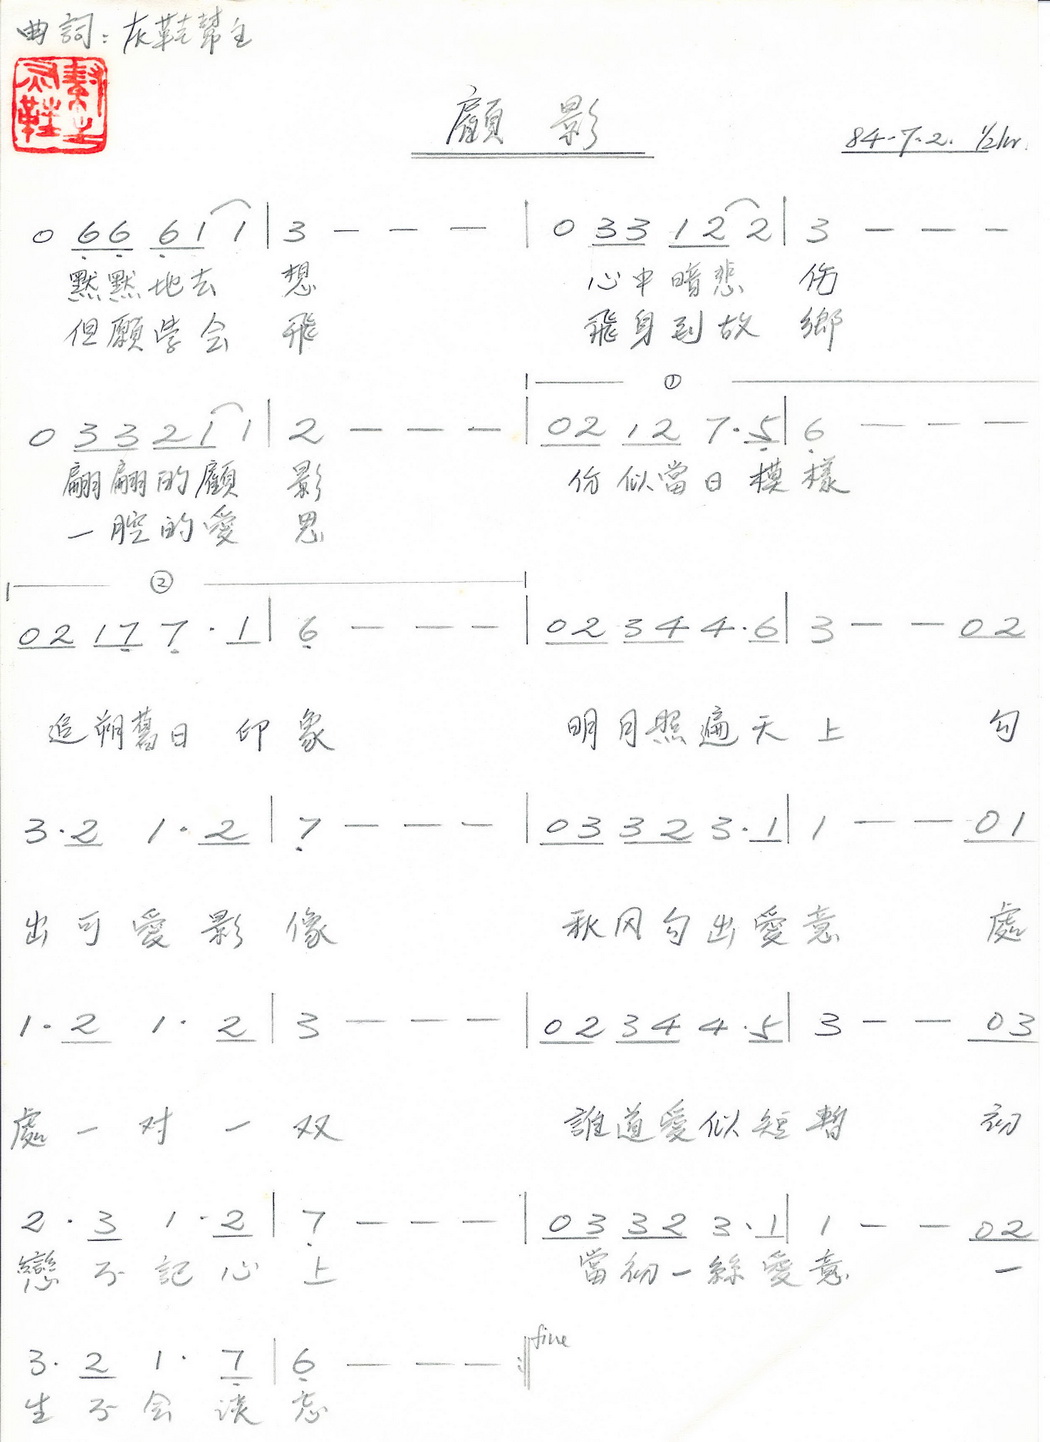 曲詞：灰鞋幫主
顧影
84-7-2. 1/2hr.
0 66 61 1 | 3 — — — | 0 33 12 2 | 3 — — —
默默地去 想 心中暗悲 伤
但願学会 飛 飛身到故 鄉
①
0 33 21 1 | 2 — — — | 02 12 7·5 | 6 — — —
翩翩的顧 影 仿似當日模樣
一腔的愛 思
②
02 17 7·1 | 6 — — — | 02 34 4·6 | 3 — — 02
追朔舊日 印象 明月照遍天上 勾
3·2 1·2 | 7 — — — | 03 32 3·1 | 1 — — 01
出可愛影像 秋风勾出愛意 處
1·2 1·2 | 3 — — — | 02 34 4·5 | 3 — — 03
處一对一双 誰道愛似短暫 初
2·3 1·2 | 7 — — — | 03 32 3·1 | 1 — — 02
戀不記心上 當初一絲愛意 一
fine
3·2 1·7 | 6 — — — :||
生不会淡忘